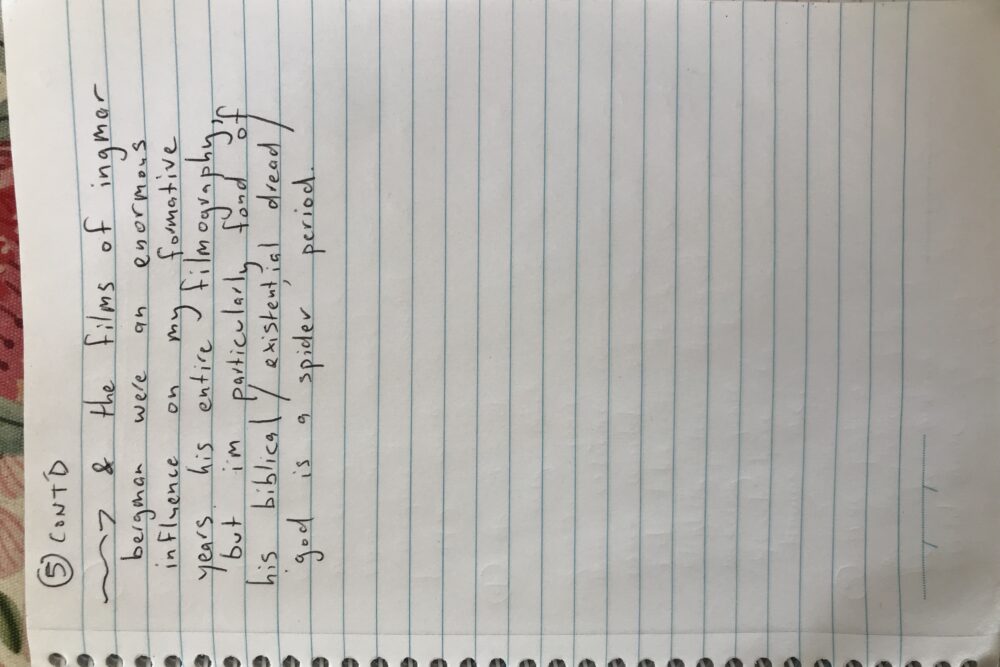 ⑤ CONT'D
& the films of ingmar
bergman were an enormous
influence on my formative
years, his entire filmography, rf
but i'm particularly fond of
his biblical / existential dread /
god is a spider period.